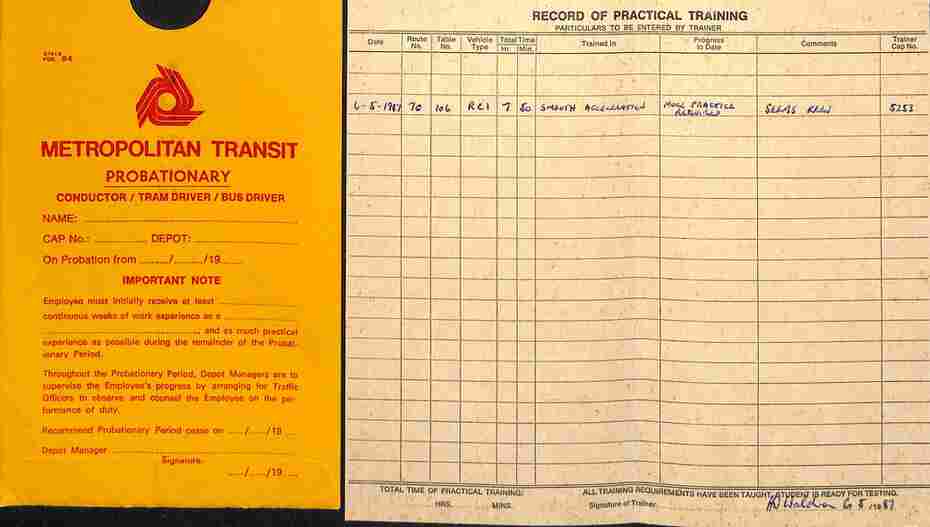 METROPOLITAN TRANSIT
PROBATIONARY
CONDUCTOR / TRAM DRIVER / BUS DRIVER
NAME:
CAP No.: DEPOT:
On Probation from / /19
IMPORTANT NOTE
Employee must initially receive at least
continuous weeks of work experience as a
, and as much practical
experience as possible during the remainder of the Probat-
ionary Period.
Throughout the Probationary Period, Depot Managers are to
supervise the Employee's progress by arranging for Traffic
Officers to observe and counsel the Employee on the per-
formance of duty.
Recommend Probationary Period cease on / /19
Depot Manager
Signature.
/ /19
RECORD OF PRACTICAL TRAINING
PARTICULARS TO BE ENTERED BY TRAINER
Date Route No. Table No. Vehicle Type Total Time Hr. Min. Trained in Progress to Date Comments Trainer Cap No.
6-5-1987 70 106 RCI 7 50 SMOOTH ACCELERATION MORE PRACTICE REQUIRED SEEMS KEEN 5253
TOTAL TIME OF PRACTICAL TRAINING: ALL TRAINING REQUIREMENTS HAVE BEEN TAUGHT. STUDENT IS READY FOR TESTING.
HRS. MINS. Signature of Trainer. 6 5 1987